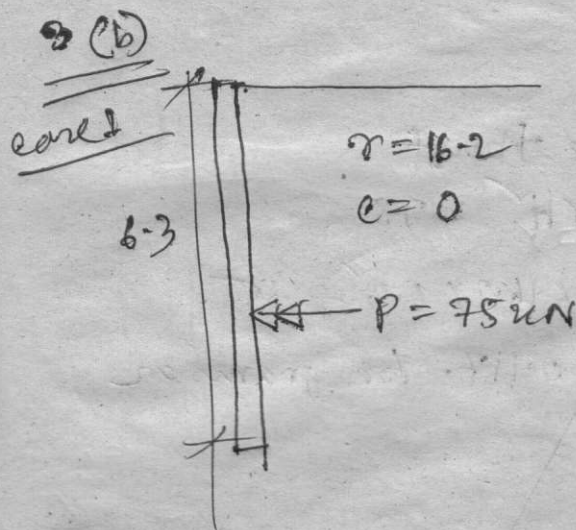 3 (b)
case 1
γ = 16.2
c = 0
6.3
P = 75 kN